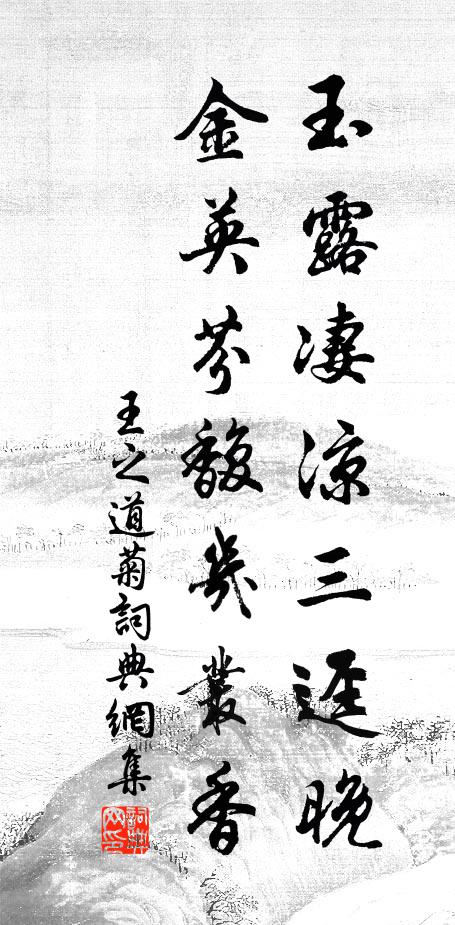 玉露凄涼三逕晚
金英芬馥幾叢香
王之道菊詞典網集